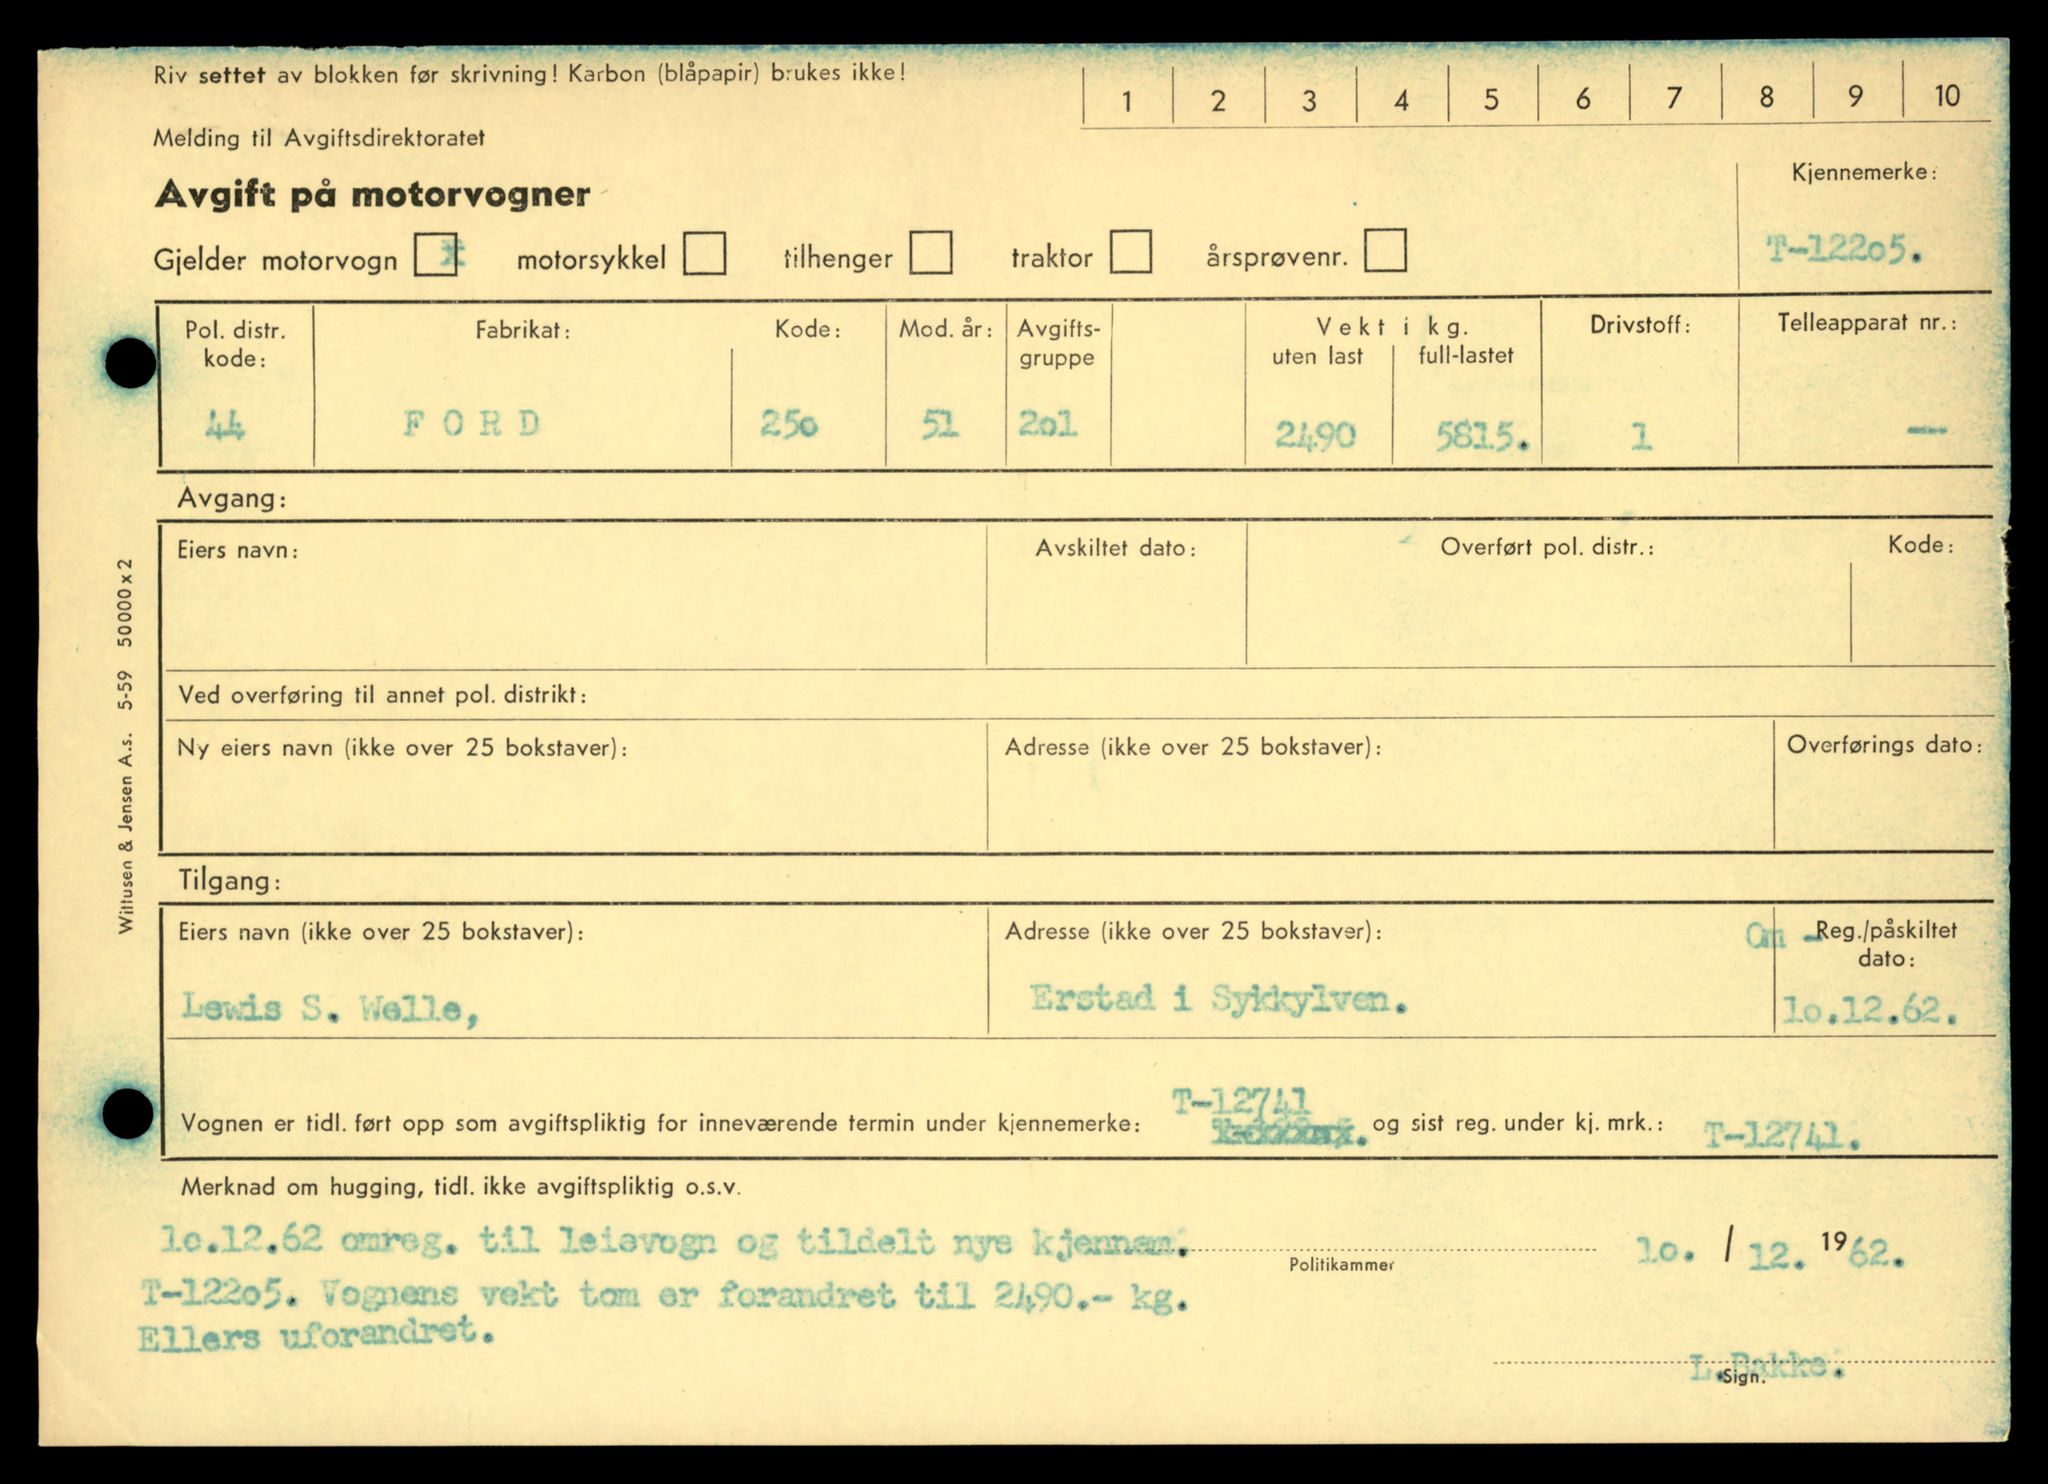 Riv settet av blokken før skrivning! Karbon (blåpapir) brukes ikke!
1 2 3 4 5 6 7 8 9 10
Melding til Avgiftsdirektoratet
Avgift på motorvogner
Kjennemerke:
T-122o5.
Gjelder motorvogn x motorsykkel tilhenger traktor årsprøvenr.
Pol. distr. kode:
Fabrikat:
Kode:
Mod. år:
Avgifts-
gruppe
Vekt i kg.
uten last
full-lastet
Drivstoff:
Telleapparat nr.:
44 FORD 25o 51 2o1 2490 5815. 1 —
Avgang:
Eiers navn:
Avskiltet dato:
Overført pol. distr.:
Kode:
Ved overføring til annet pol. distrikt:
Ny eiers navn (ikke over 25 bokstaver):
Adresse (ikke over 25 bokstaver):
Overførings dato:
Tilgang:
Eiers navn (ikke over 25 bokstaver):
Adresse (ikke over 25 bokstaver):
Om - Reg./påskiltet
dato:
Lewis S. Welle,
Erstad i Sykkylven.
lo.12.62.
T-12741
Vognen er tidl. ført opp som avgiftspliktig for inneværende termin under kjennemerke: og sist reg. under kj. mrk.: T-12741.
Merknad om hugging, tidl. ikke avgiftspliktig o.s.v.
lo.12.62 omreg. til leievogn og tildelt nye kjennem.
Politikammer
lo. / 12. 1962.
T-122o5. Vognens vekt tom er forandret til 2490.- kg.
Ellers uforandret.
L.Bakke.
Sign.
Wittusen & Jensen A.s. 5-59 50000 x 2